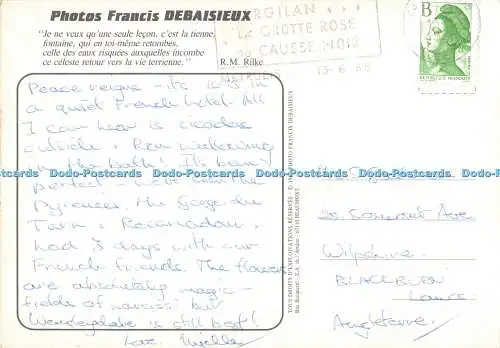 Photos Francis DEBAISIEUX
"Je ne veux qu'une seule leçon, c'est la tienne,
fontaine, qui en toi-même retombes,
celle des eaux risquées auxquelles incombe
ce céleste retour vers la vie terrienne."
R.M. Rilke
GROTTE ROSE
CAUSSE NOIR
13-6-88
B
Peace reigns - its 10.15 in
a quiet French hotel. All
I can hear is cicadas
outside & Ron wallowing
in the bath! It's been
perfect - we've been the
Pyrenees, the Gorge du
Tarn & Rocamadour &
had 3 days with our
French friends. The flowers
are absolutely magic -
fields of narcissi but
Wensleydale is still best!
Love
TOUS DROITS D'EXPLOITATIONS RÉSERVÉS - © PHOTO FRANCIS DEBAISIEUX
63110 BEAUMONT
20 Somerset Ave
Wilpshire
BLACKBURN
Lancs
Angleterre
Dodo-Postcards Dodo-Postcards Dodo-Postcards Dodo-Postcards Dodo-Postcards